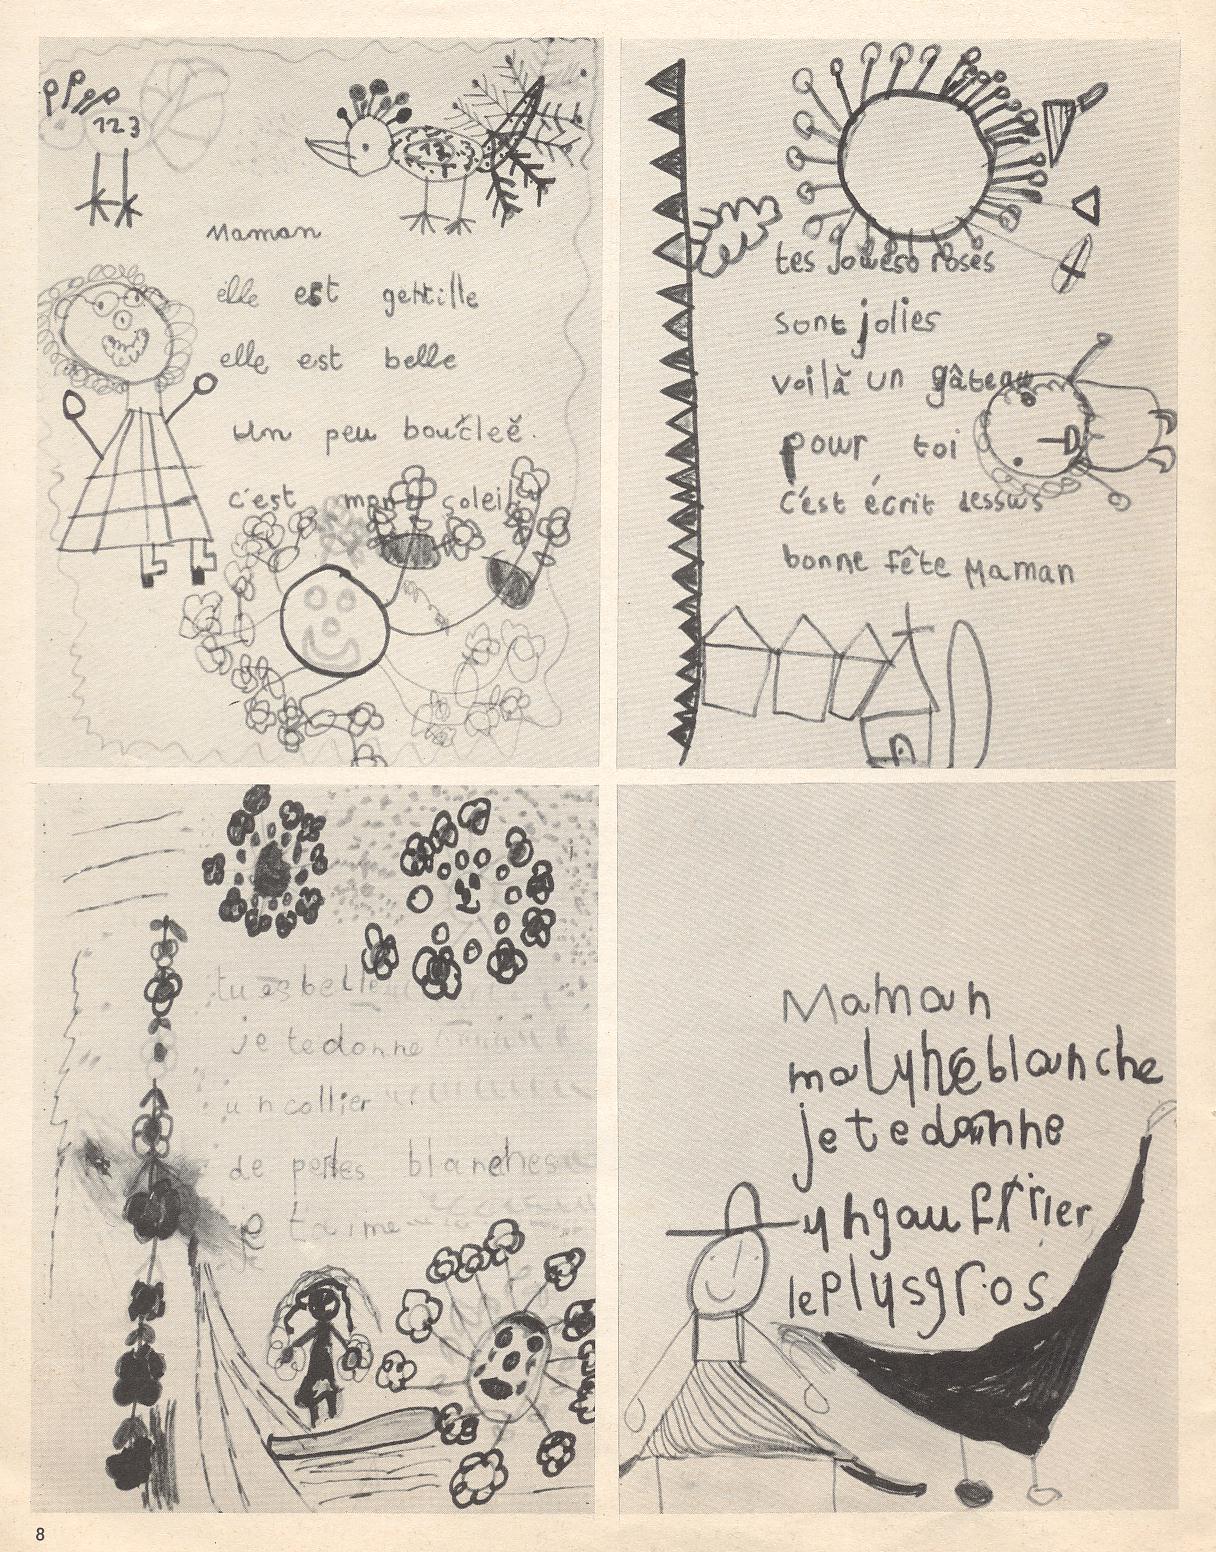 123
Maman
elle est gentille
elle est belle
un peu bouclée.
c'est mon soleil
tes joues roses
sont jolies
voilà un gâteau
pour toi
c'est écrit dessus
bonne fête Maman
tu es belle
je te donne
un collier
de perles blanches
je t'aime
Maman
ma lune blanche
je te donne
un gaufrier
le plus gros
8